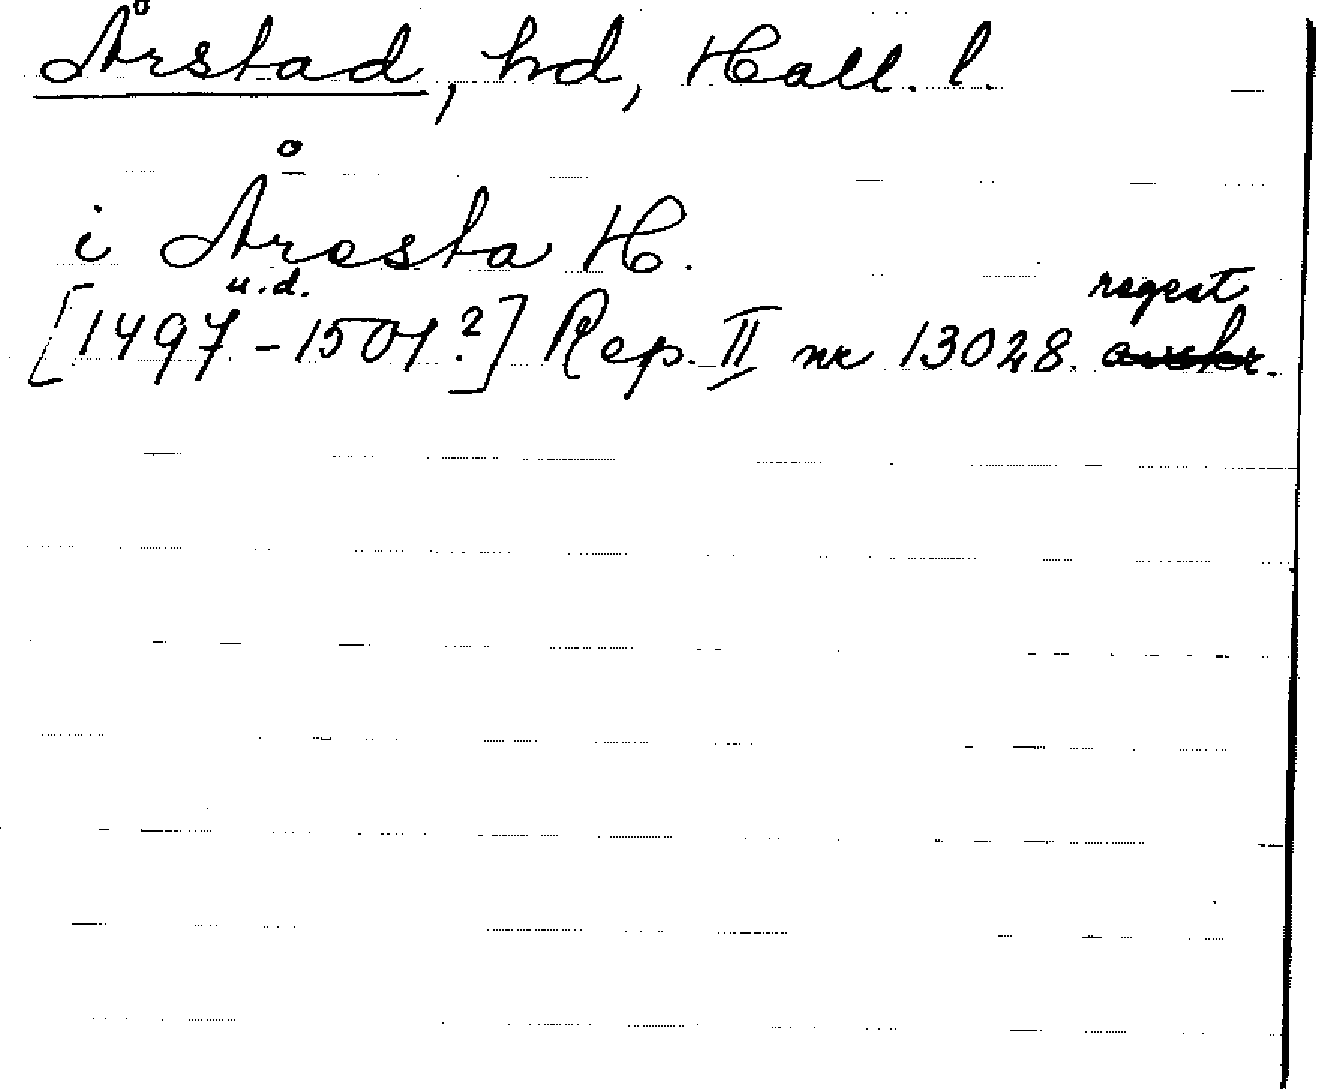 Årstad, hd, Hall. l.
i Åresta H.
u.d.
[1497-1501?] Rep. II nr 13028. regest